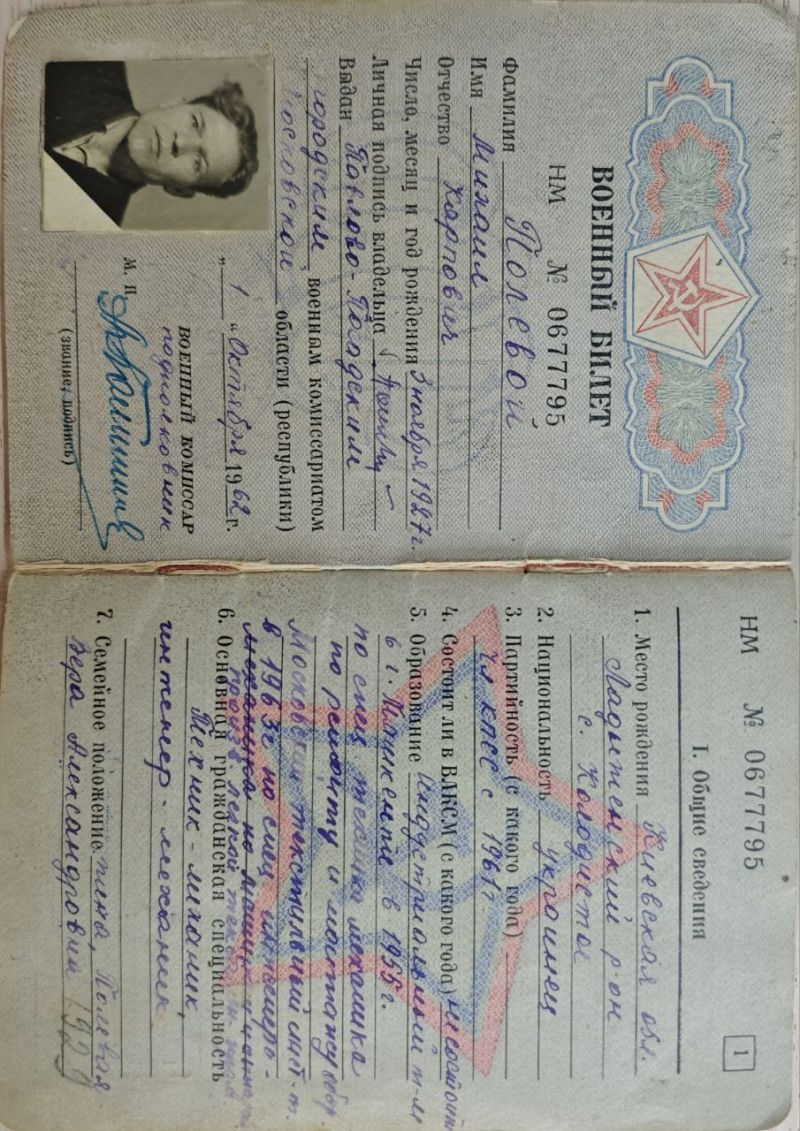 ВОЕННЫЙ БИЛЕТ
НМ № 0677795
Фамилия Полевой
Имя Михаил
Отчество Карпович
Число, месяц и год рождения 3 ноября 1927г.
Личная подпись владельца
Выдан Павлово-Посадским
городским военным комиссариатом
Московской области (республики)
„ 1 “ Октября 1962 г.
ВОЕННЫЙ КОМИССАР
подполковник
М. П.
(звание, подпись)
НМ № 0677795
1
I. Общие сведения
1. Место рождения Киевская обл.
Ладыженский р-он
с. Колодистое
2. Национальность украинец
3. Партийность (с какого года)
чл КПСС с 1961г.
4. Состоит ли в ВЛКСМ (с какого года) не состоит
5. Образование Индустриальный т-м
в г. Чимкенте в 1955 г.
по спец техника механика
по ремонту и монтажу обор.
Московский текстильный инст-т.
в 1963г по спец инженера-
механика по машинам
6. Основная гражданская специальность
Техник-механик,
инженер-механик
7. Семейное положение жена, Полевая
Вера Александровна 1929